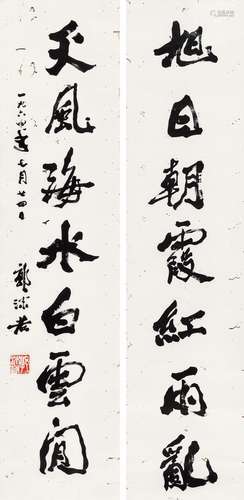 旭日朝霞紅雨亂
天風海水白雲閒
一九六四年七月廿四日
郭沫若